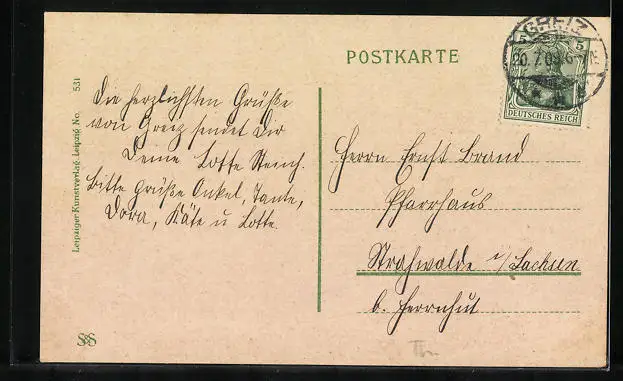 POSTKARTE
GREIZ
20.7.09.6-7N
5 5
DEUTSCHES REICH
Die herzlichsten Grüße
von Greiz sendet Dir
Deine Lotte
Bitte grüße Onkel, Tante,
Dora, Käte u Lotte.
Herrn Ernst Brand
Pfarrhaus
Strahwalde i/Sachsen
b. Herrnhut
Leipziger Kunstverlag Leipzig No. 531
S&S
Th